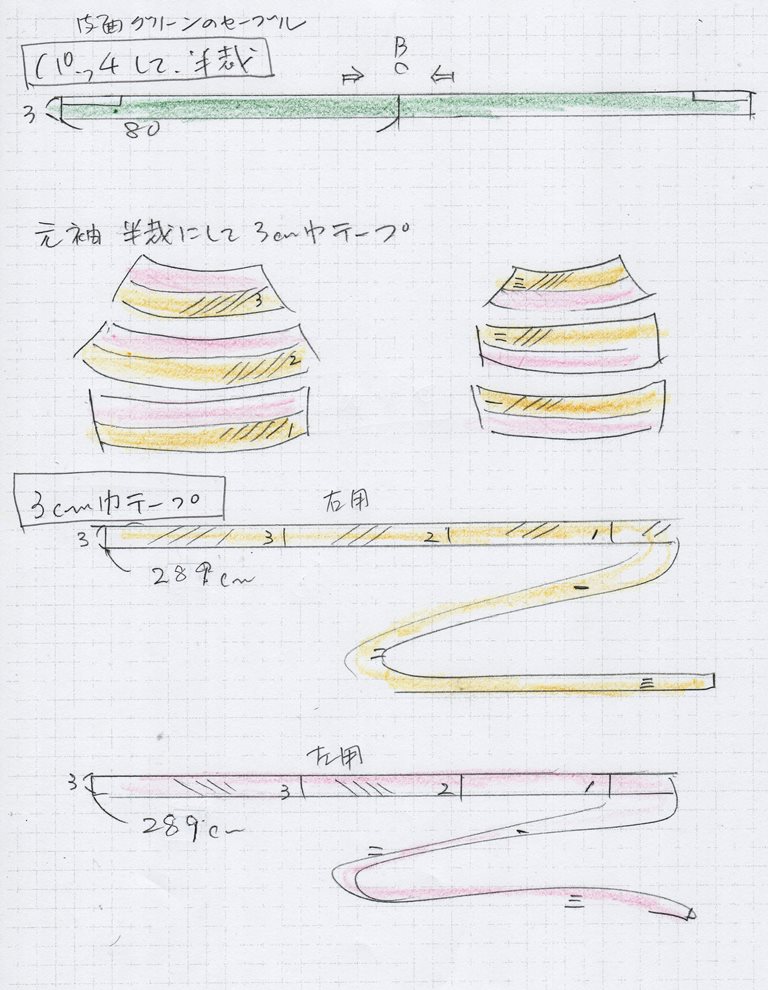 皮面グリーンのセーブル
パッチして、半裁
B
C
3
80
元袖 半裁にして 3cm巾テープ
3
三
2
二
1
一
3cm巾テープ
右用
3 3 2 1
289cm
一
二
三
左用
3 3 2 1
289cm
一
二
三